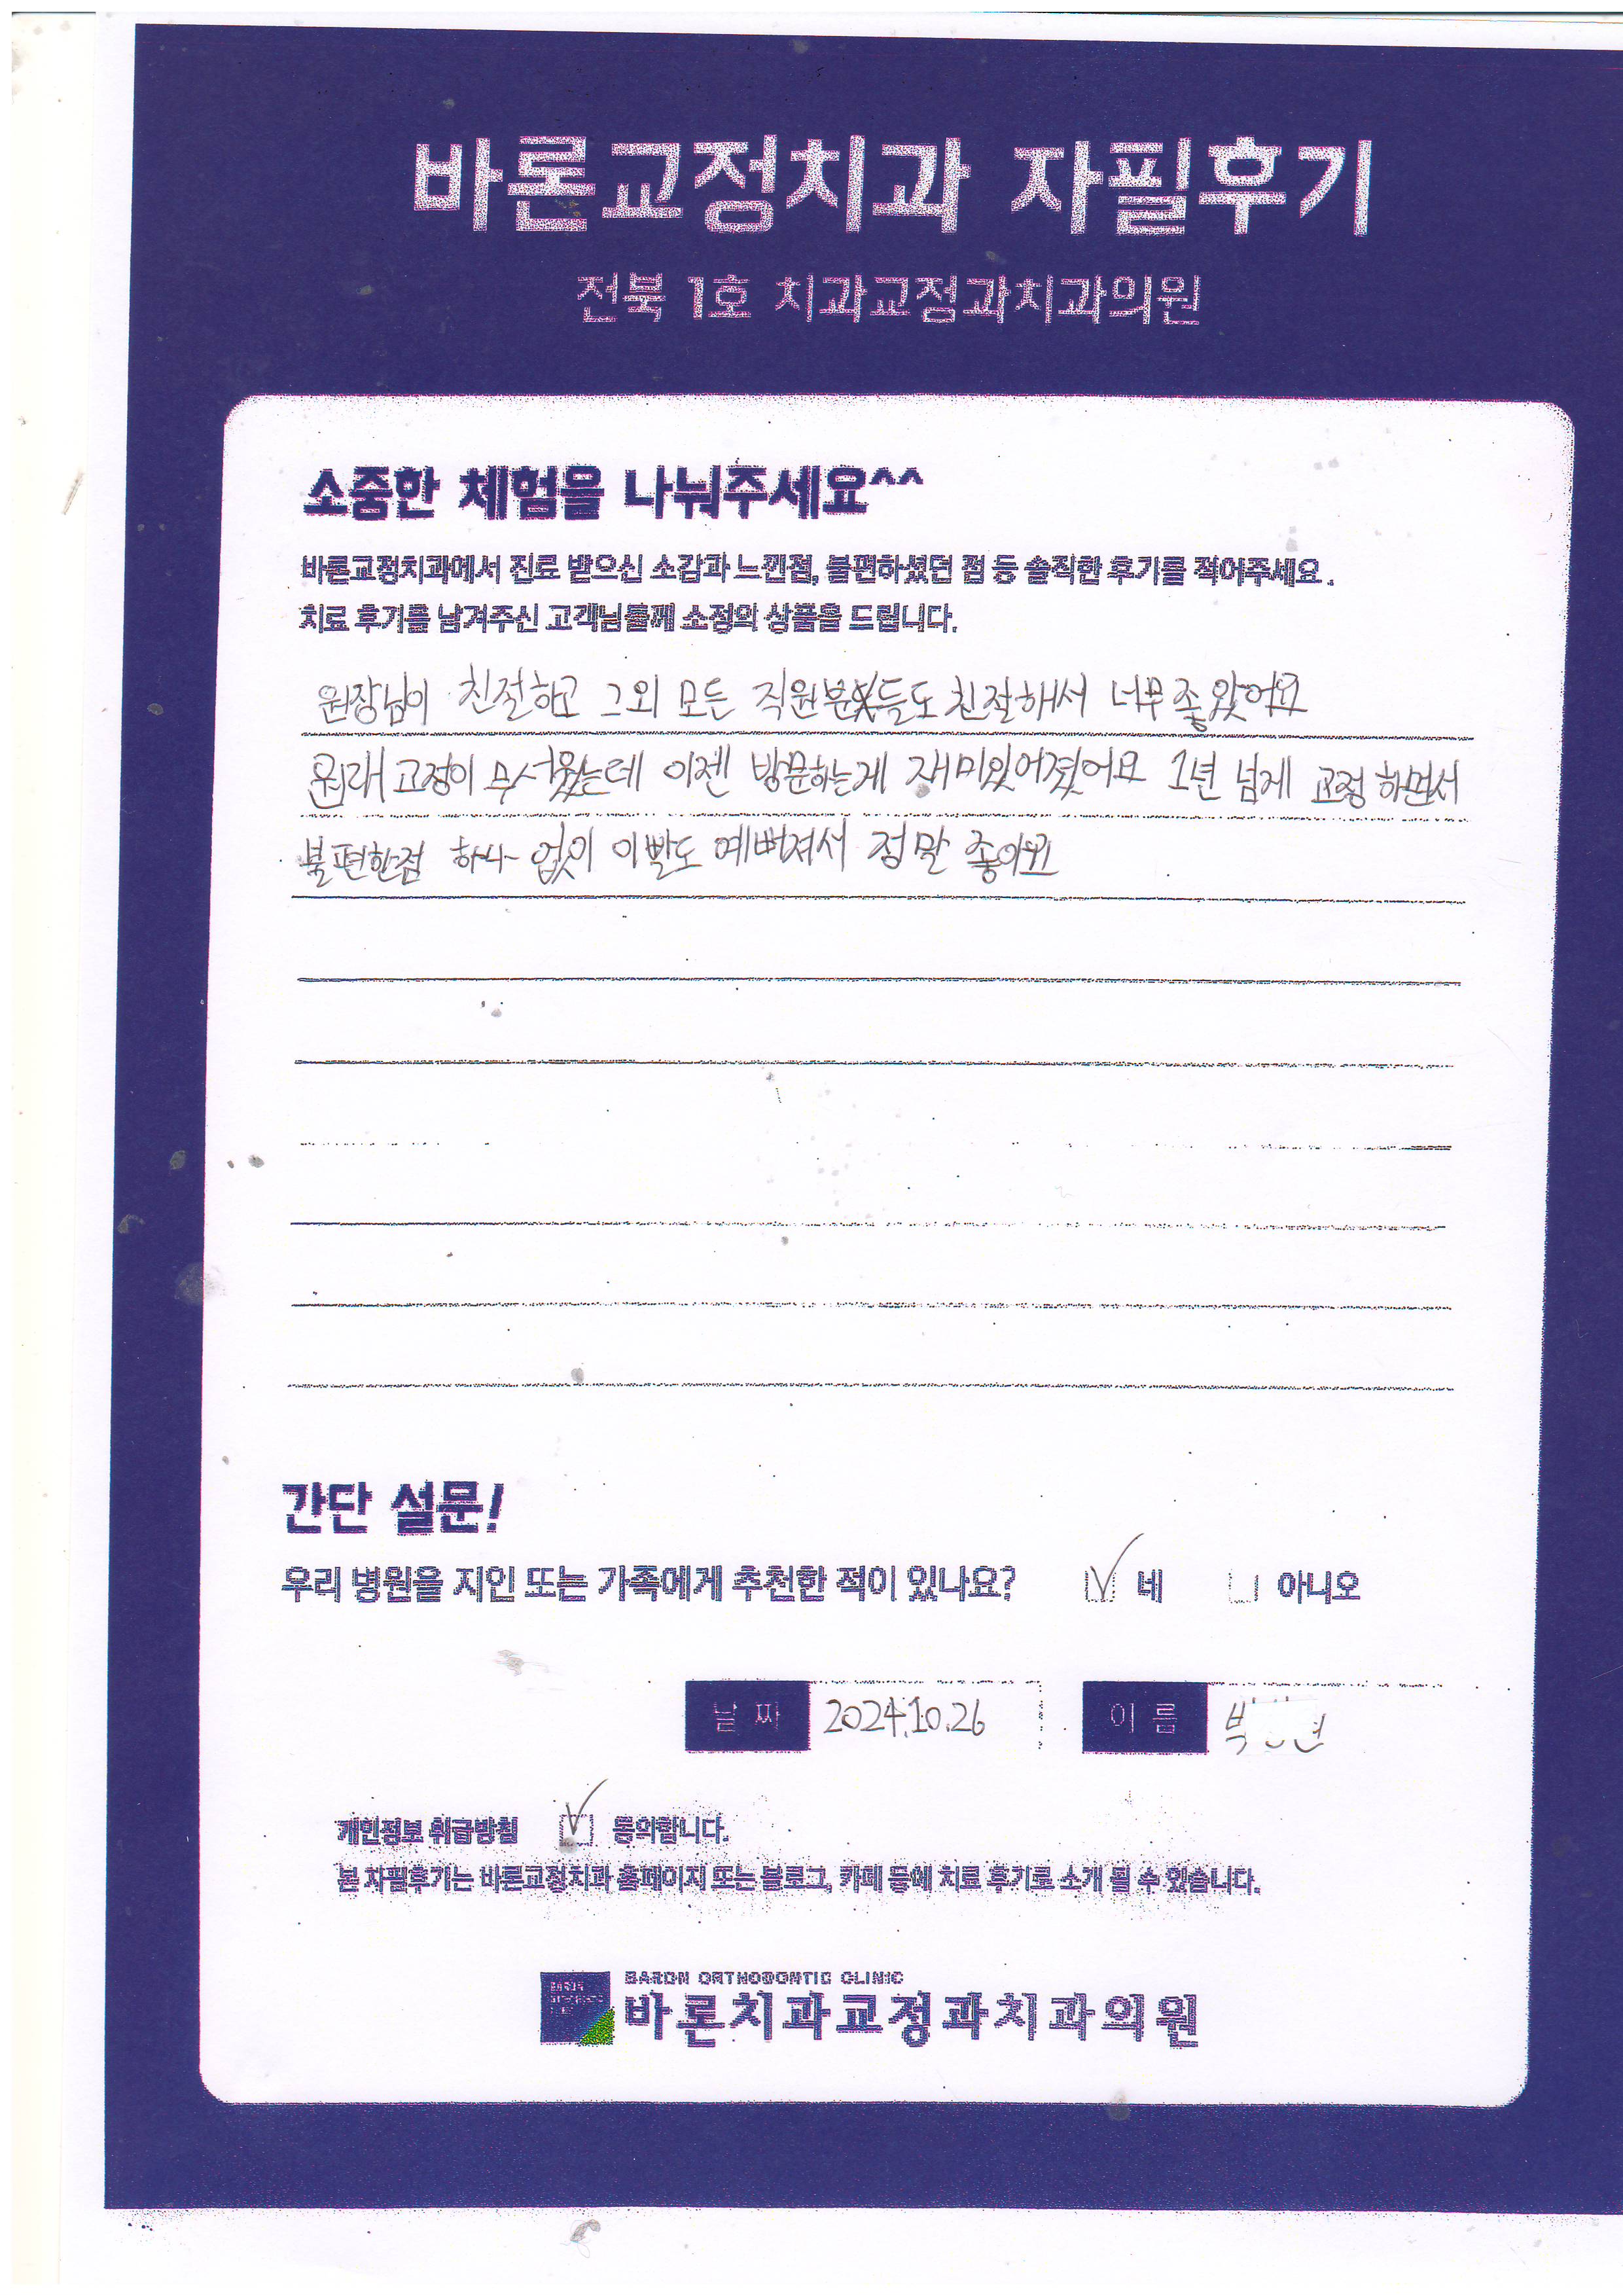 바론교정치과 자필후기
전북 1호 치과교정과치과의원
소중한 체험을 나눠주세요^^
바론교정치과에서 진료 받으신 소감과 느낀점, 불편하셨던 점 등 솔직한 후기를 적어주세요.
치료 후기를 남겨주신 고객님들께 소정의 상품을 드립니다.
원장님이 친절하고 그외 모든 직원분들도 친절해서 너무 좋았어요
원래 교정이 무서웠는데 이젠 방문하는게 재미있어졌어요 1년 넘게 교정 하면서
불편한점 하나 없이 이빨도 예뻐져서 정말 좋아요
간단 설문!
우리 병원을 지인 또는 가족에게 추천한 적이 있나요? 네 아니오
날 짜 2024.10.26 이 름 박
개인정보 취급방침 동의합니다.
본 자필후기는 바론교정치과 홈페이지 또는 블로그, 카페 등에 치료 후기로 소개 될 수 있습니다.
BARON ORTHODONTIC CLINIC
바론치과교정과치과의원